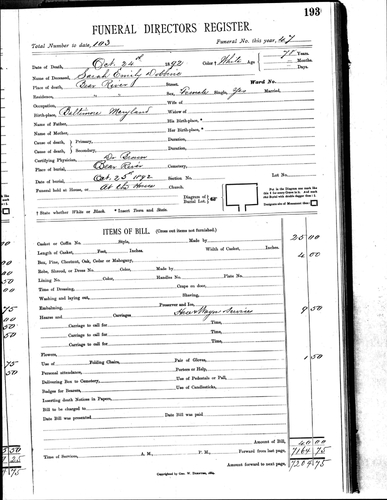 193
FUNERAL DIRECTORS REGISTER.
Total Number to date, 103 Funeral No. this year, 47
Date of Death, Oct. 24th 1892 Color † White Age 78 Years.
Months.
Days.
Name of Deceased, Sarah Emily
Place of death, Bear River Street. Ward No.
Residence, Sex, Female Single, Yes Married,
Occupation, Wife of
Birth-place, Baltimore Maryland Widow of
Name of Father, His Birth-place, *
Name of Mother, Her Birth-place, *
Cause of death, } Primary, Duration,
Cause of death, } Secondary, Duration,
Certifying Physician, Dr
Place of burial, Bear River Cemetery,
Date of burial, Oct. 25th 1892 Section No. Lot No.
Funeral held at House, or At the House Church.
Diagram of Burial Lot.
Put in the Diagram one mark thus
Designate site of Monument thus
† State whether White or Black. * Insert Town and State.
ITEMS OF BILL. (Cross out items not furnished.)
Casket or Coffin No. Style, Made by 25 00
Length of Casket, Feet, Inches. Width of Casket, Inches.
Box, Pine, Chestnut, Oak, Cedar or Mahogany, 4 00
Robe, Shroud, or Dress No. Color, Made by
Lining No. Color, Handles No. Plate No.
Time of Dressing, Crape on door,
Washing and laying out, Shaving,
Embalming, Preserver and Ice,
Hearse and Carriages 9 50
Carriage to call for Time,
Carriage to call for Time,
Carriage to call for Time,
Flowers,
Use of Folding Chairs, Pair of Gloves, 1 50
Personal attendance, Porters or Help,
Delivering Box to Cemetery, Use of Pedestals or Pall,
Badges for Bearers, Use of Candlesticks,
Inserting death Notices in Papers,
Bill to be charged to
Date Bill was presented Date Bill was paid
Amount of Bill, 40 00
Time of Services, A. M., P. M. Forward from last page, 7164 75
Amount forward to next page, 7204 75